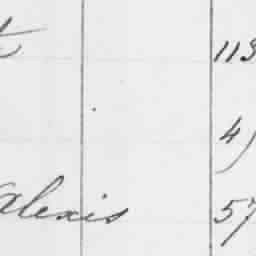 t 113
4)
Alexis 57